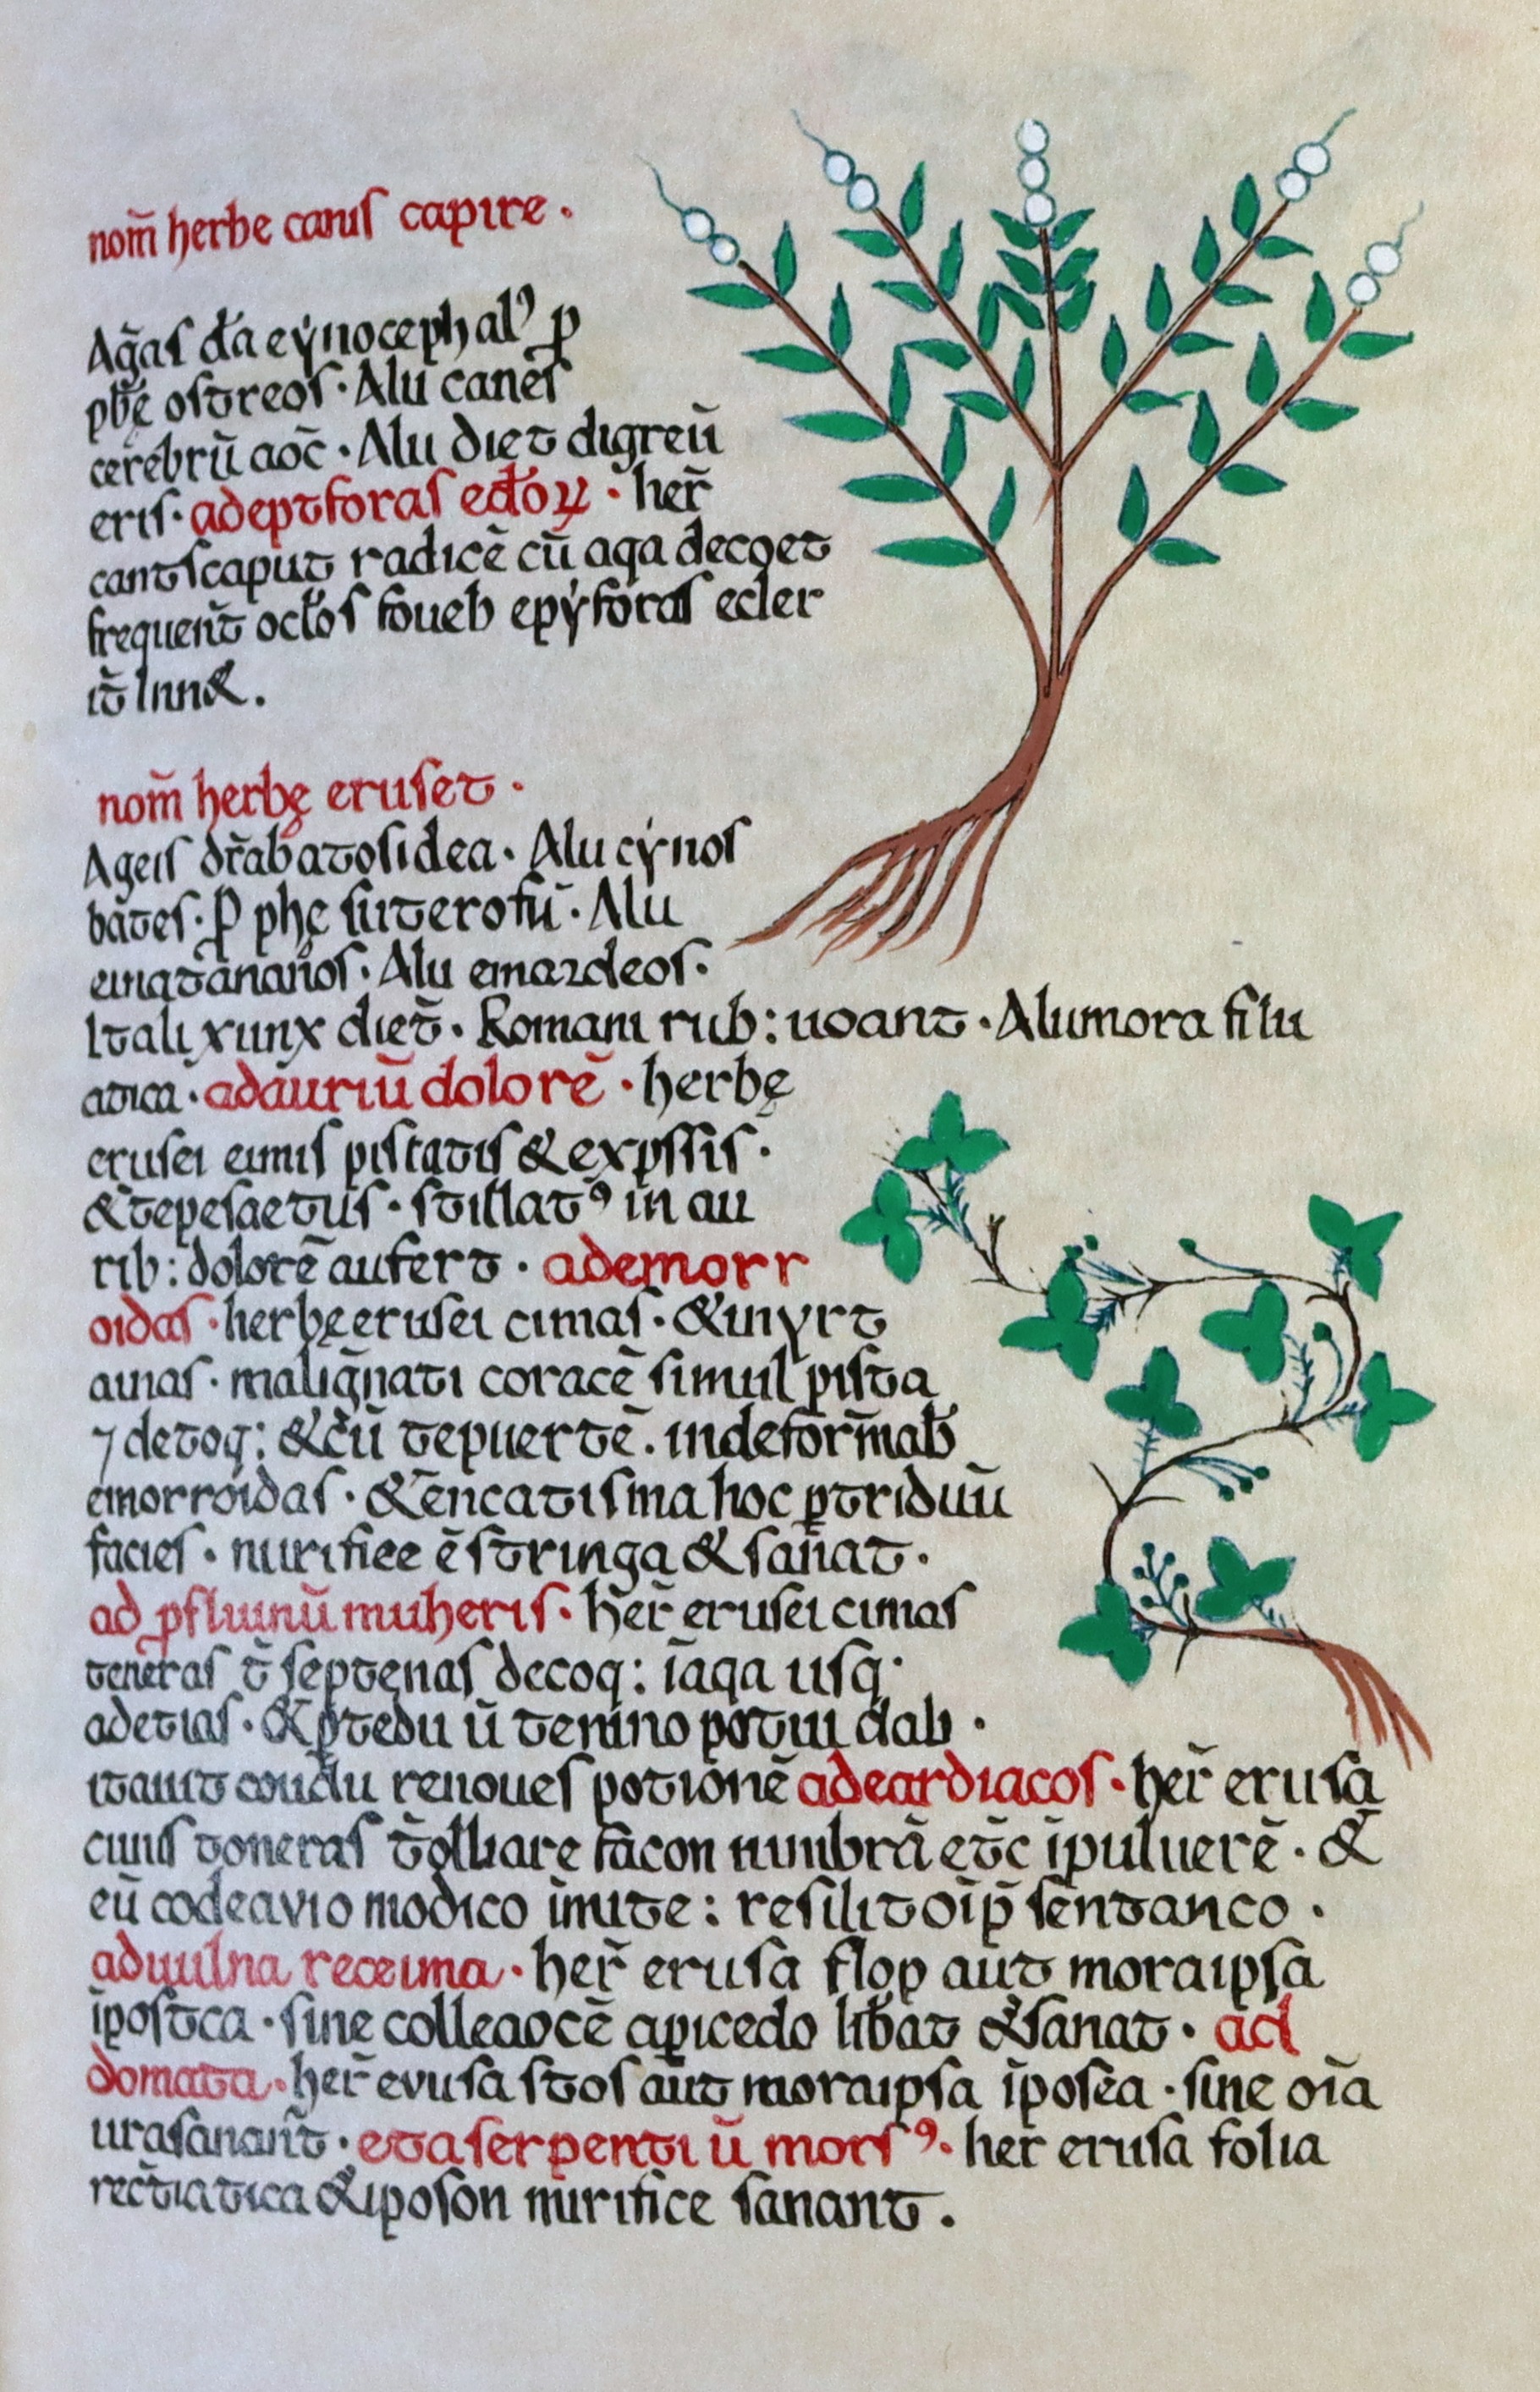 nom̄ herbe canis capite ·
Aḡas dẜa cynocephal⁹ p
pħę ostreos · Alii canes
cerebrū aoc̄ · Alii diet digreū
eris · adeptforas ecto · her̄
cantscaput radicē cū aqa decoqet
frequent̄ octos foueb epẏforas ecler
it̄ Inn& .
nom̄ herbę eruset ·
Ageis dr̄abatosidea · Alii cẏnos
bates · p phę sinterofū · Alii
einatananos · Alii emardeos ·
Itali xunx diet̄ · Romani rub: uoant · Aliimora filu
atica · adauriū dolorē · herbę
erusei eimis pistatis & expssis ·
& tepesaetus · stillat⁹ in au
rib: dolorē aufert · ademorr
oidas · herbęerusei cimas · & inyrt
ainas · malignati coracē simul pista
⁊ detoq: & cū tepuertē . indeform̄ab
emorroidas · & encatisma hoc ptriduū
facies · nurifice ēstringa & sanat ·
ad pfluinū muheris · her̄ erusei cimas
teneras t̄ septenas decoq: īaqa usq·
adetias · & ptedu ū tenino potui dab ·
itauit coudu renoues potionē adeardiacos · her̄ erusa
cuius toneras t̄olliare facon numbrā et̄c īpuluerē · &
eū codeavio modico imite: resilitoīp̄ sentanco ·
aduulna receima · her̄ erusa flop aut moraipsa
īpostca · sine colleaocē apicedo libat & sanat · ad
domata · her̄ evusa stos aut moraipsa īposēa · sine oīa
urasanant̄ · etaserpenti ū mors⁹ · her̄ erusa folia
rect̄iatica & iposon nurifice sanant .